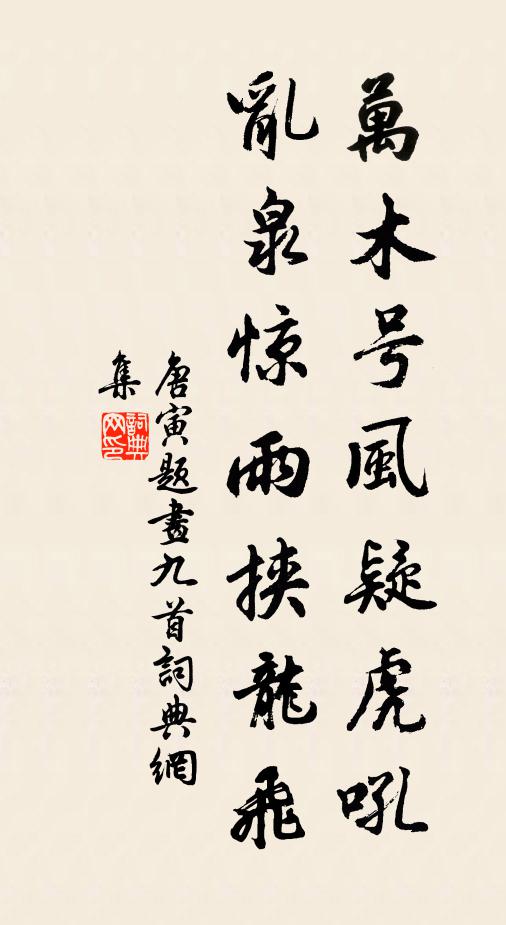 萬木号風疑虎吼
亂泉惊雨挾龍飛
唐寅題畫九首詞典網
集
詞典
网印